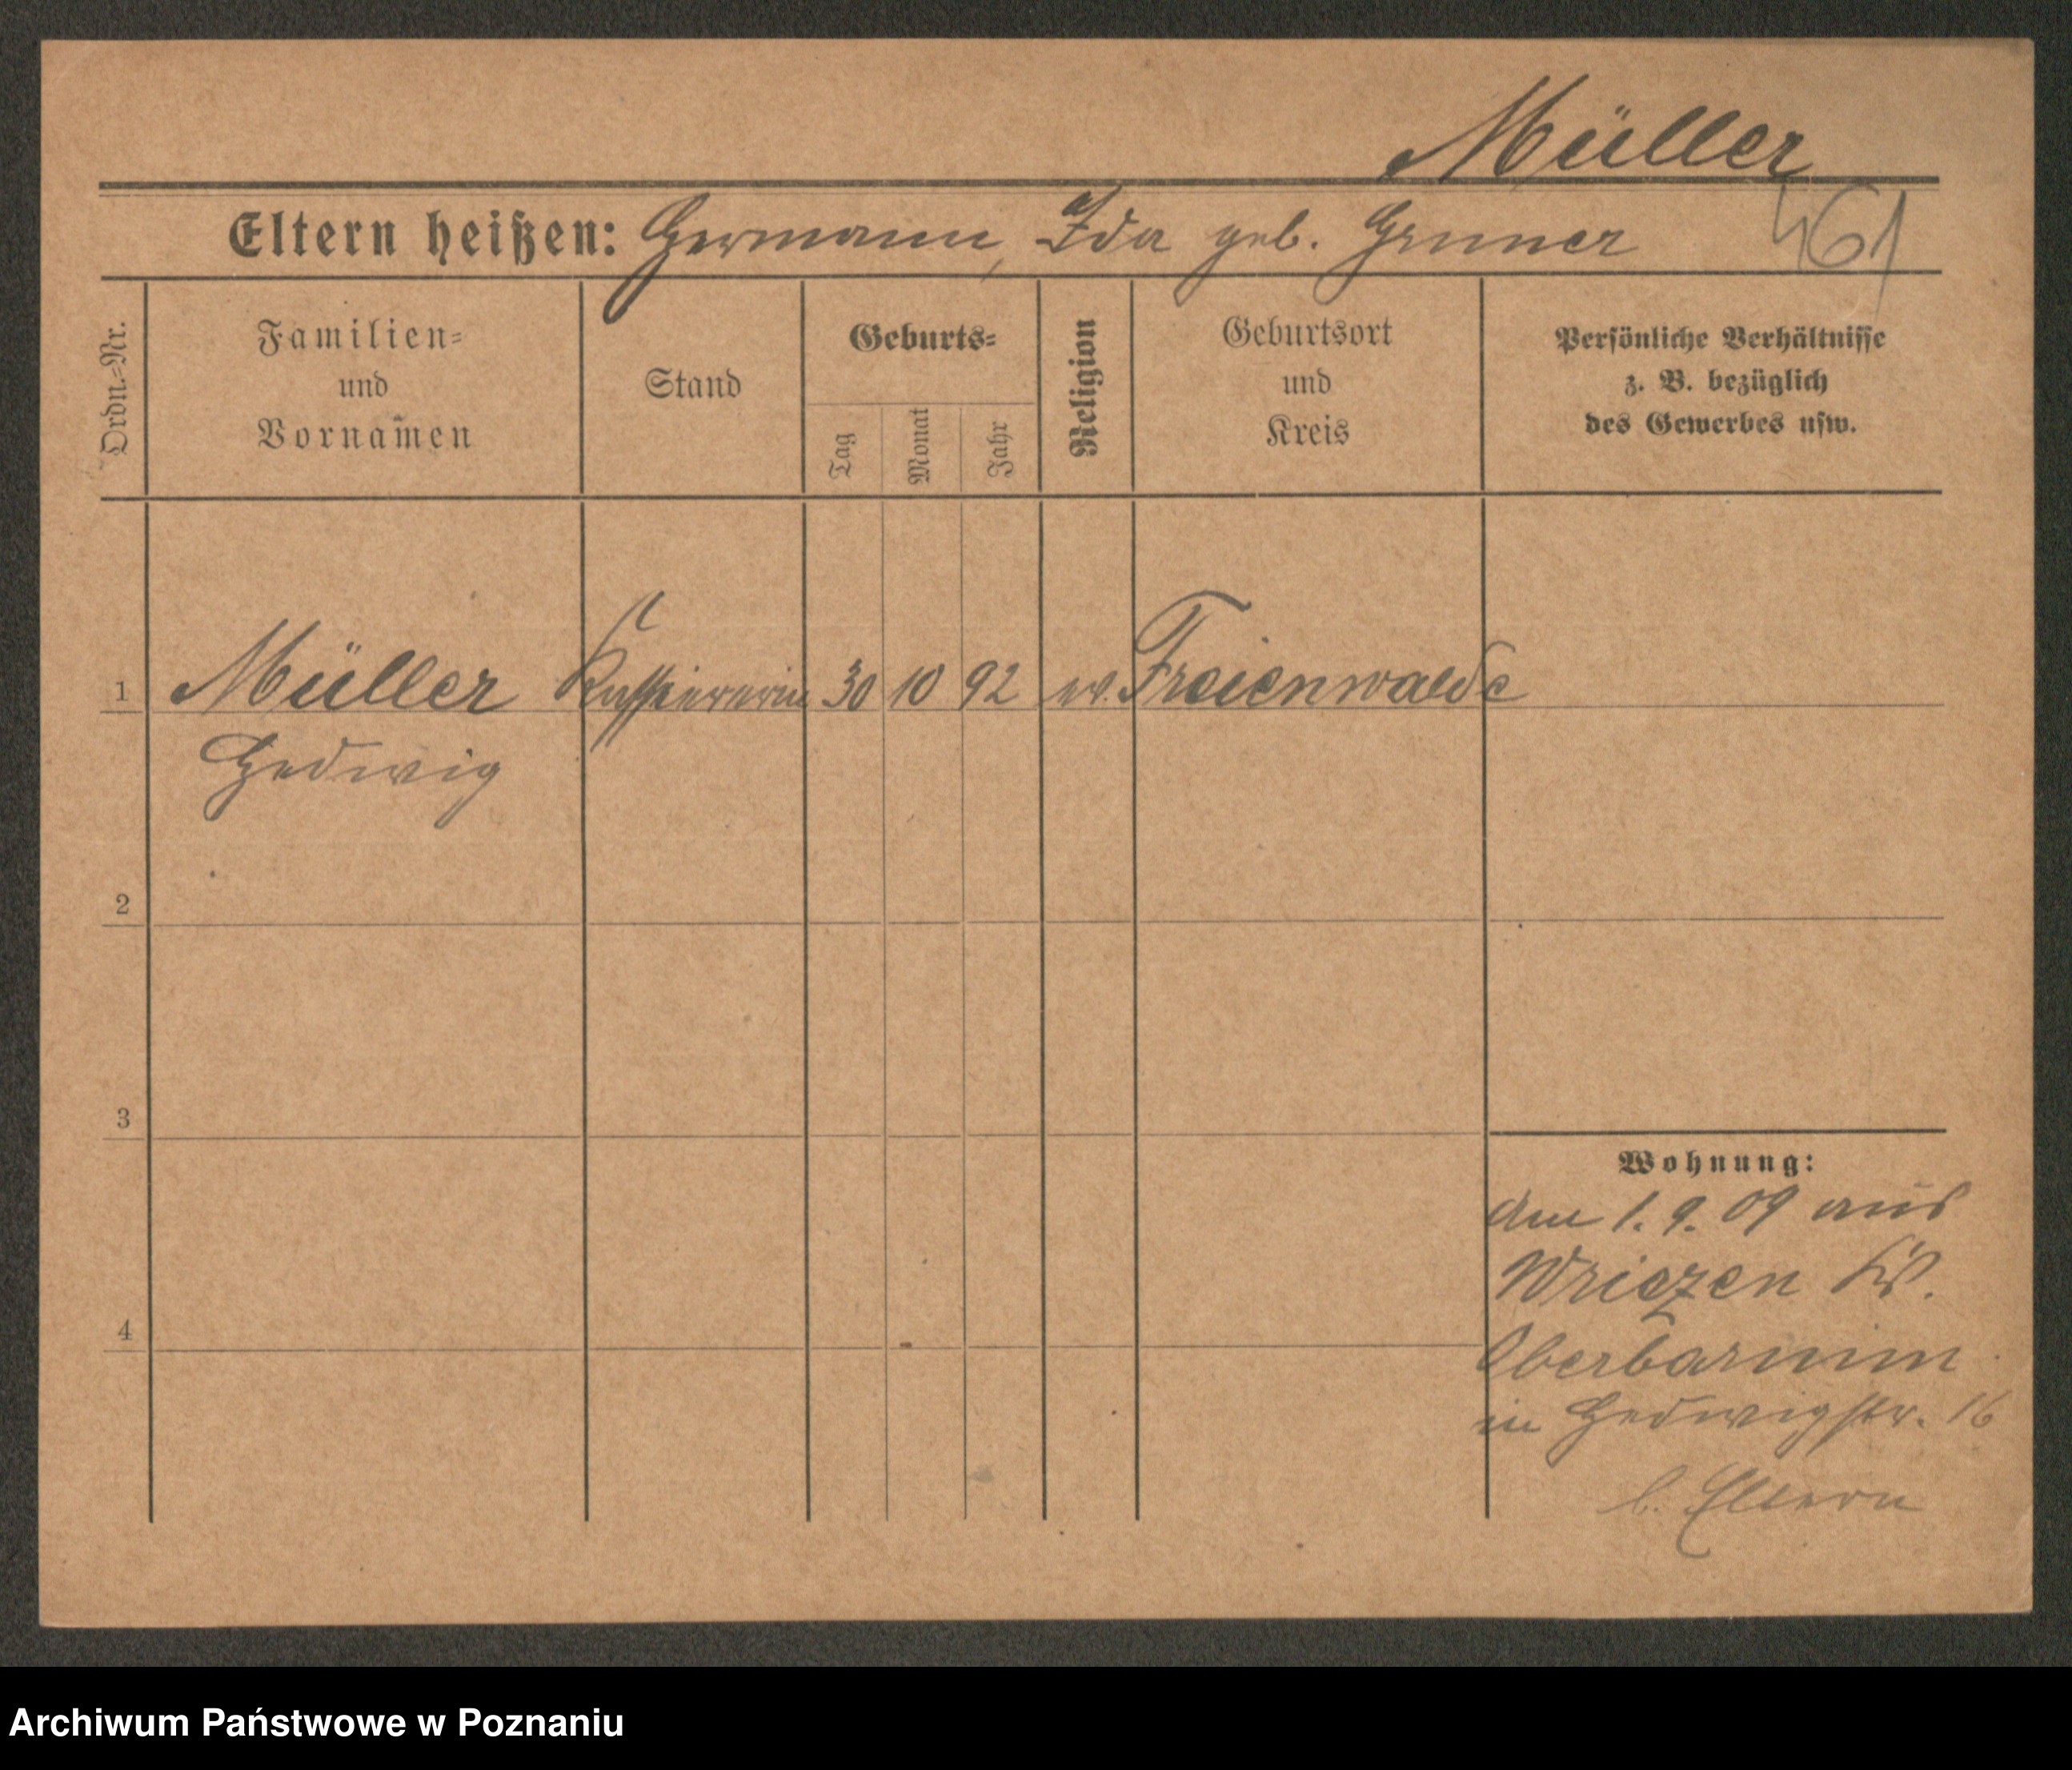 Müller
Eltern heißen: Hermann, Ida geb. Gruner
461
Ordn.-Nr.
Familien-
und
Vornamen
Stand
Geburts-
Tag
Monat
Jahr
Religion
Geburtsort
und
Kreis
Persönliche Verhältnisse
z. B. bezüglich
des Gewerbes usw.
1 Müller Kassiererin 30 10 92 ev. Freienwalde
Hedwig
2
3
4
Wohnung:
Am 1. 9. 09 aus
Wriezen Kr.
Oberbarnim
in Hedwigstr. 16
b. Eltern
Archiwum Państwowe w Poznaniu